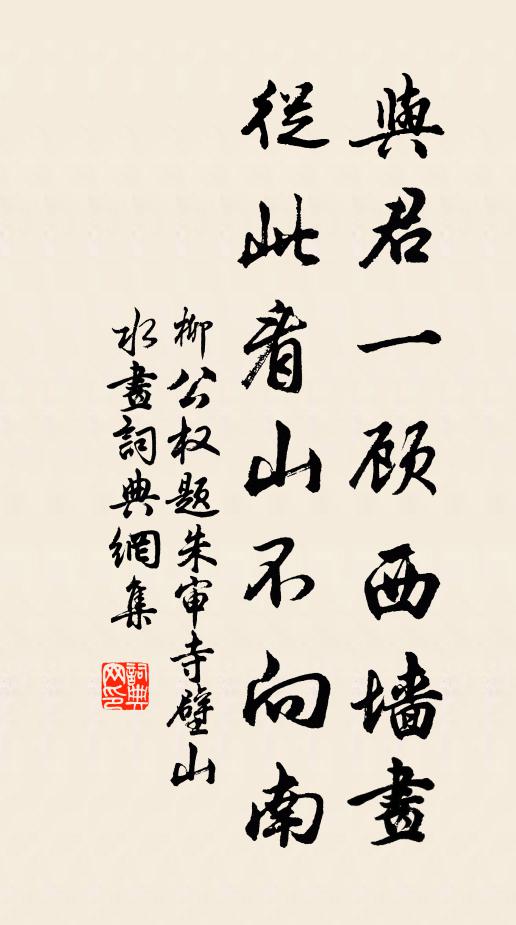 與君一顾西墙畫
從此看山不向南
柳公权题朱审寺壁山
水畫詞典網集
詞典网印